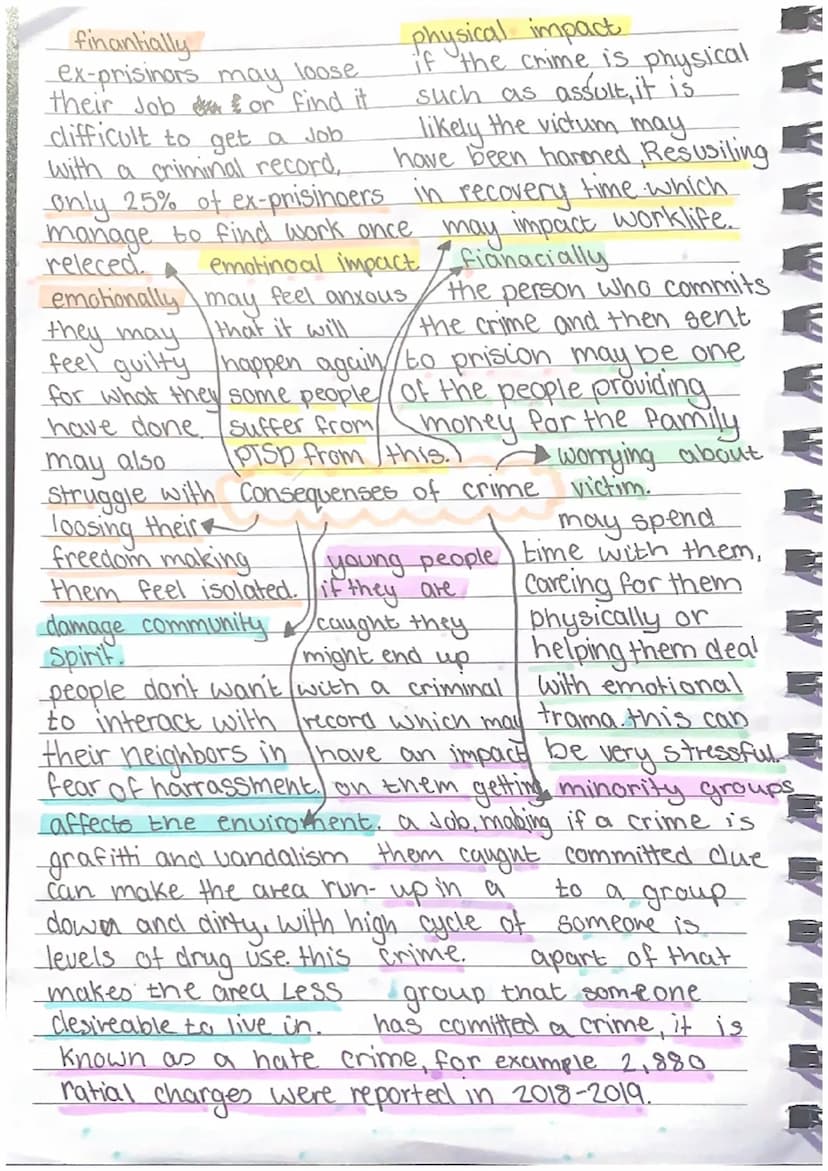 finantially
ex-prisinors may loose
their Job or find it
difficult to get a Job
with a criminal record,
only 25% of ex-prisinoers
manage to find work once
releced.
physical impact
if the crime is physical
such as assult, it is
likely the victum may
have been harmed, Resusiling
in recovery time which
may impact worklife.
emotinoal impact
may feel anxous
that it will
happen again
some people
suffer from
PTSD from this.
fianacially
the person who commits
the crime and then sent
to prision may be one
of the people providing
money for the family
emotionally
they may
feel guilty
for what they
have done.
may also
struggle with
loosing their
freedom making
them feel isolated.
Consequenses of crime
worrying about
victim.
may spend
time with them,
careing for them
physically or
helping them deal
with emotional
trama. this can
be very stressful.
damage community
Spirit.
people don't want
to interact with
their neighbors in
fear of harrassment.
young people
if they are
caught they
might end up
with a criminal
record which may
have an impact
on them getting
a Job, making
them caught
up in a
cycle of
crime.
affects the enviroment.
grafitti and vandalism
can make the area run-
down and dirty, with high
levels of drug use. this
makes the area Less
desireable to live in.
minority groups
if a crime is
committed due
to a group
someone is
apart of that
group that someone
has comitted a crime, it is
known as a hate crime, for example 2,880
ratial charges were reported in 2018-2019.